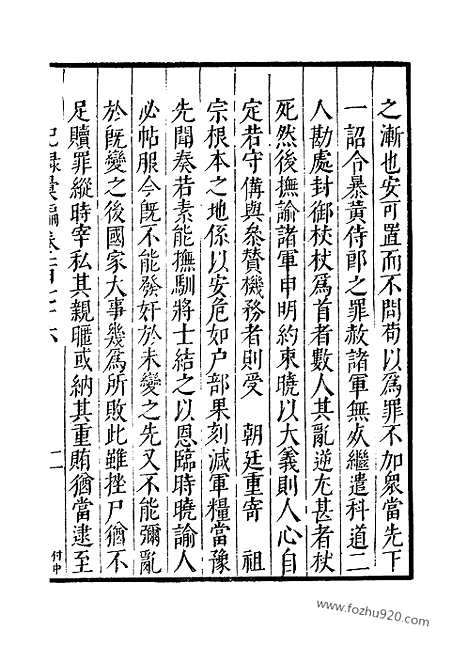 之漸也安可置而不問苟以爲罪不加衆當先下
一詔令暴黃侍郎之罪赦諸軍無必繼遣科道二
人勘處封御杖杖爲首者數人其亂逆尤甚者杖
死然後撫諭諸軍申明約束曉以大義則人心自
定若守備與參贊機務者則受　朝廷重寄　祖
宗根本之地係以安危如户部果刻減軍糧當豫
先聞奏若素能撫馴將士結之以恩臨時曉諭人
必帖服今旣不能發奸於未變之先又不能彌亂
於旣變之後國家大事幾爲所敗此雖挫尸猶不
足贖罪縱時宰私其親暱或納其重賄猶當逮至
紀錄彙編卷二百七十六
二
付中
www.fozhu920.com